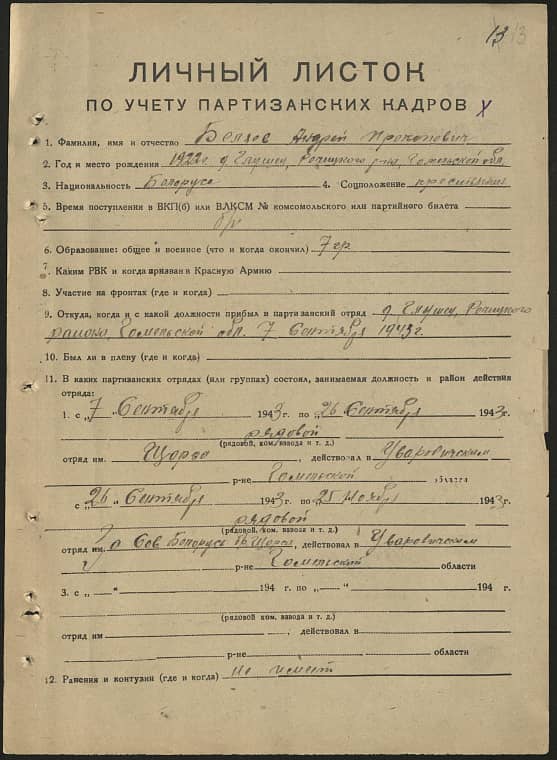 13 13
ЛИЧНЫЙ ЛИСТОК
ПО УЧЕТУ ПАРТИЗАНСКИХ КАДРОВ
1. Фамилия, имя и отчество Андрей Прокопович
2. Год и место рождения 1922г. д. Глушец, Речицкого р-на, Гомельской обл.
3. Национальность Белорус 4. Соцположение крестьянин
5. Время поступления в ВКП(б) или ВЛКСМ № комсомольского или партийного билета
б/п
6. Образование: общее и военное (что и когда окончил) 7 гр
7. Каким РВК и когда призван в Красную Армию
8. Участие на фронтах (где и когда)
9. Откуда, когда и с какой должности прибыл в партизанский отряд д. Глушец, Речицкого
района, Гомельской обл. 7 Сентября 1943г.
10. Был ли в плену (где и когда)
11. В каких партизанских отрядах (или группах) состоял, занимаемая должность и район действия
отряда:
1. с „7" Сентября 1943 г. по „26 Сентября 1943 г.
рядовой
(рядовой, ком. взвода и т. д.)
отряд им. Щорса, действовал в Уваровичском
р-не Гомельской области
с „26" Сентября 1943 г. по „25 Ноября 1943 г.
рядовой
(рядовой, ком. взвода и т. д.)
отряд им. Сов. Белорусь бр. Щорса, действовал в Уваровичском
р-не Гомельский области
3. с „ — " 194 г. по „—" 194 г.
(рядовой, ком. взвода и т. д.)
отряд им , действовал в
р-не области
12. Ранения и контузии (где и когда) не имеет